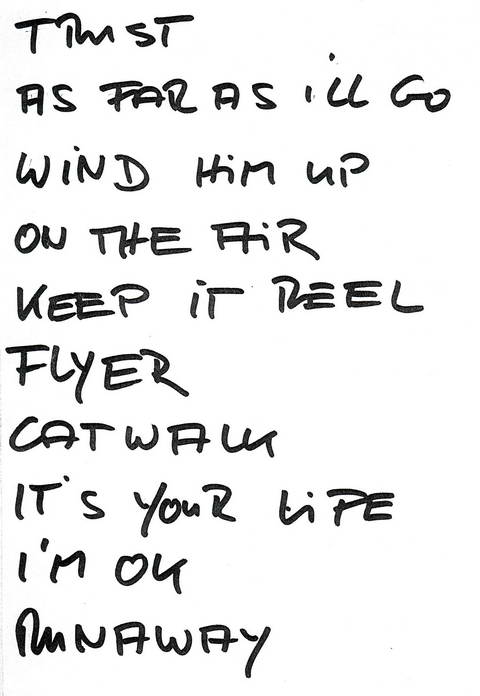 TRUST
AS FAR AS i'LL GO
WiND HiM UP
ON THE AiR
KEEP iT REEL
FLYER
CATWALK
IT'S YOUR LiFE
I'M OK
RUNAWAY